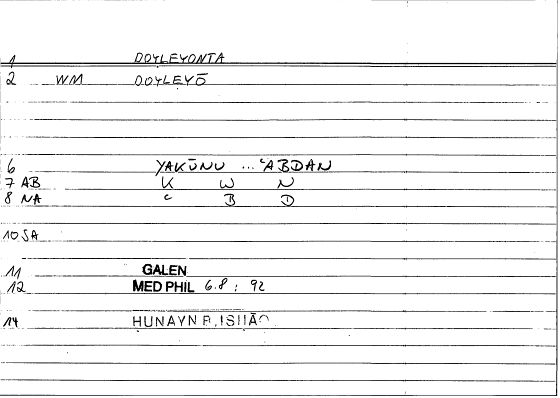 1 DOYLEYONTA
2 WM DOYLEYŌ
6 YAKŪNU ... ʿABDAN
7 AB K W N
8 NA ʿ B D
10 SA
11 GALEN
12 MED PHIL 6.8 : 92
14 HUNAYN B. ISHĀQ